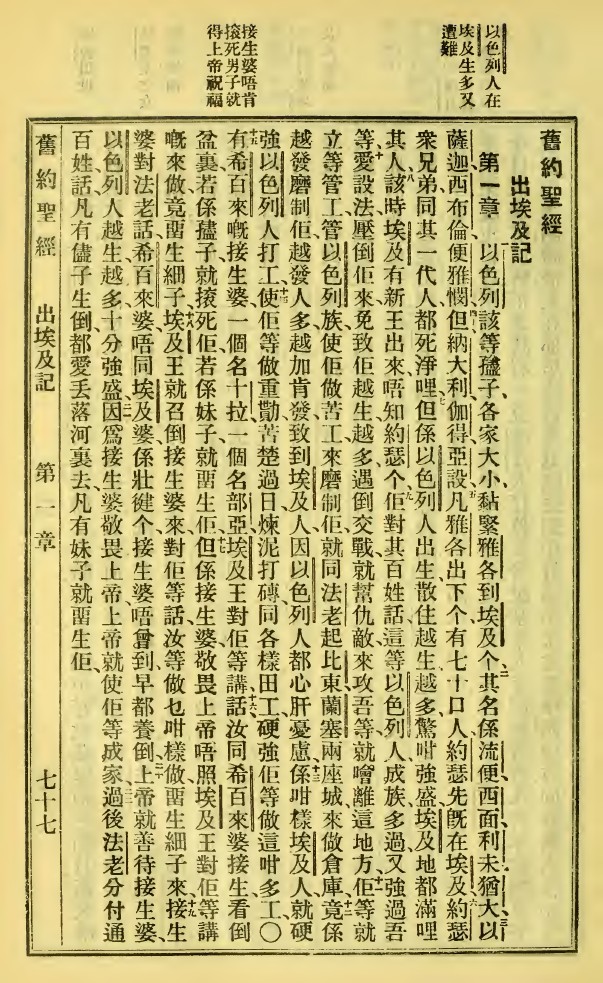 以色列人在
埃及生多又
遭難
接生婆唔肯
㨰死男子就
得上帝祝福
舊約聖經
出埃及記
第一章 以色列該等孻子、各家大小黏緊雅各到埃及个、其名係流便、西面、利未、猶大、以
薩迦、西布倫、便雅憫、但、納大利、伽得、亞設、凡雅各出下个有七十口人、約瑟先既在埃及、約瑟
衆兄弟同其一代人都死淨哩、但係以色列人出生散住、越生越多、驚咁強盛、埃及地都滿哩
其人、該時埃及有新王出來、唔知約瑟个、佢對其百姓話、這等以色列人成族多過又強過吾
等、愛設法壓倒佢來、免致佢越生越多、遇倒交戰就幫仇敵來攻吾等、就噲離這地方、佢等就
立等管工、管以色列族、使佢做苦工來磨制佢、就同法老起比東蘭塞兩座城、來做倉庫、竟係
越發磨制佢、越發人多、越加肯發、致到埃及人因以色列人都心肝憂慮、係咁樣、埃及人就硬
強以色列人打工、使佢等做重勩、苦楚過日、煉泥打磚、同各樣田工、硬強佢等做這咁多工、〇
有希百來嘅接生婆、一個名十拉、一個名部亞、埃及王對佢等講、話汝同希百來婆接生、看倒
盆裏、若係孻子就㨰死佢、若係妹子就畱生佢、但係接生婆敬畏上帝、唔照埃及王對佢等講
嘅來做、竟畱生細子、埃及王就召倒接生婆來、對佢等話、汝等做乜咁樣做、畱生細子來、接生
婆對法老話、希百來婆唔同埃及婆、係壯健个、接生婆唔曾到、早都養倒、上帝就善待接生婆、
以色列人越生越多、十分強盛、因爲接生婆敬畏上帝、上帝就使佢等成家、過後法老分付通
百姓話、凡有儘子生倒、都愛丟落河裏去、凡有妹子就畱生佢、
舊約聖經 出埃及記 第一章 七十七